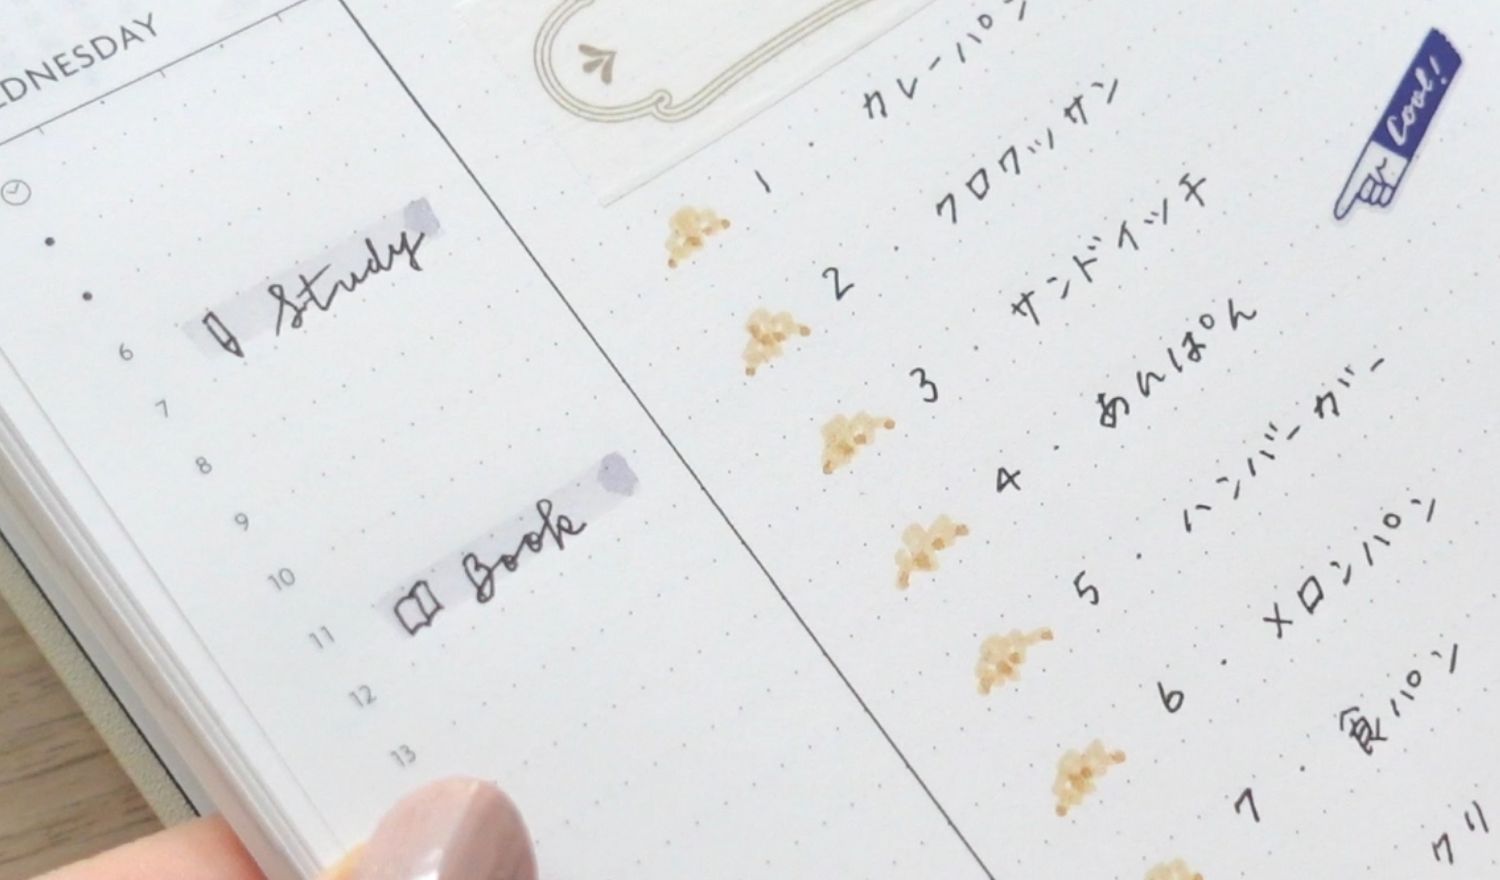 DNESDAY
6
Study
7
8
9
10
11
Book
12
13
1・カレーパン
2・クロワッサン
3・サンドイッチ
4・あんぱん
5・ハンバーガー
6・メロンパン
7・食パン
クリ
Cool!